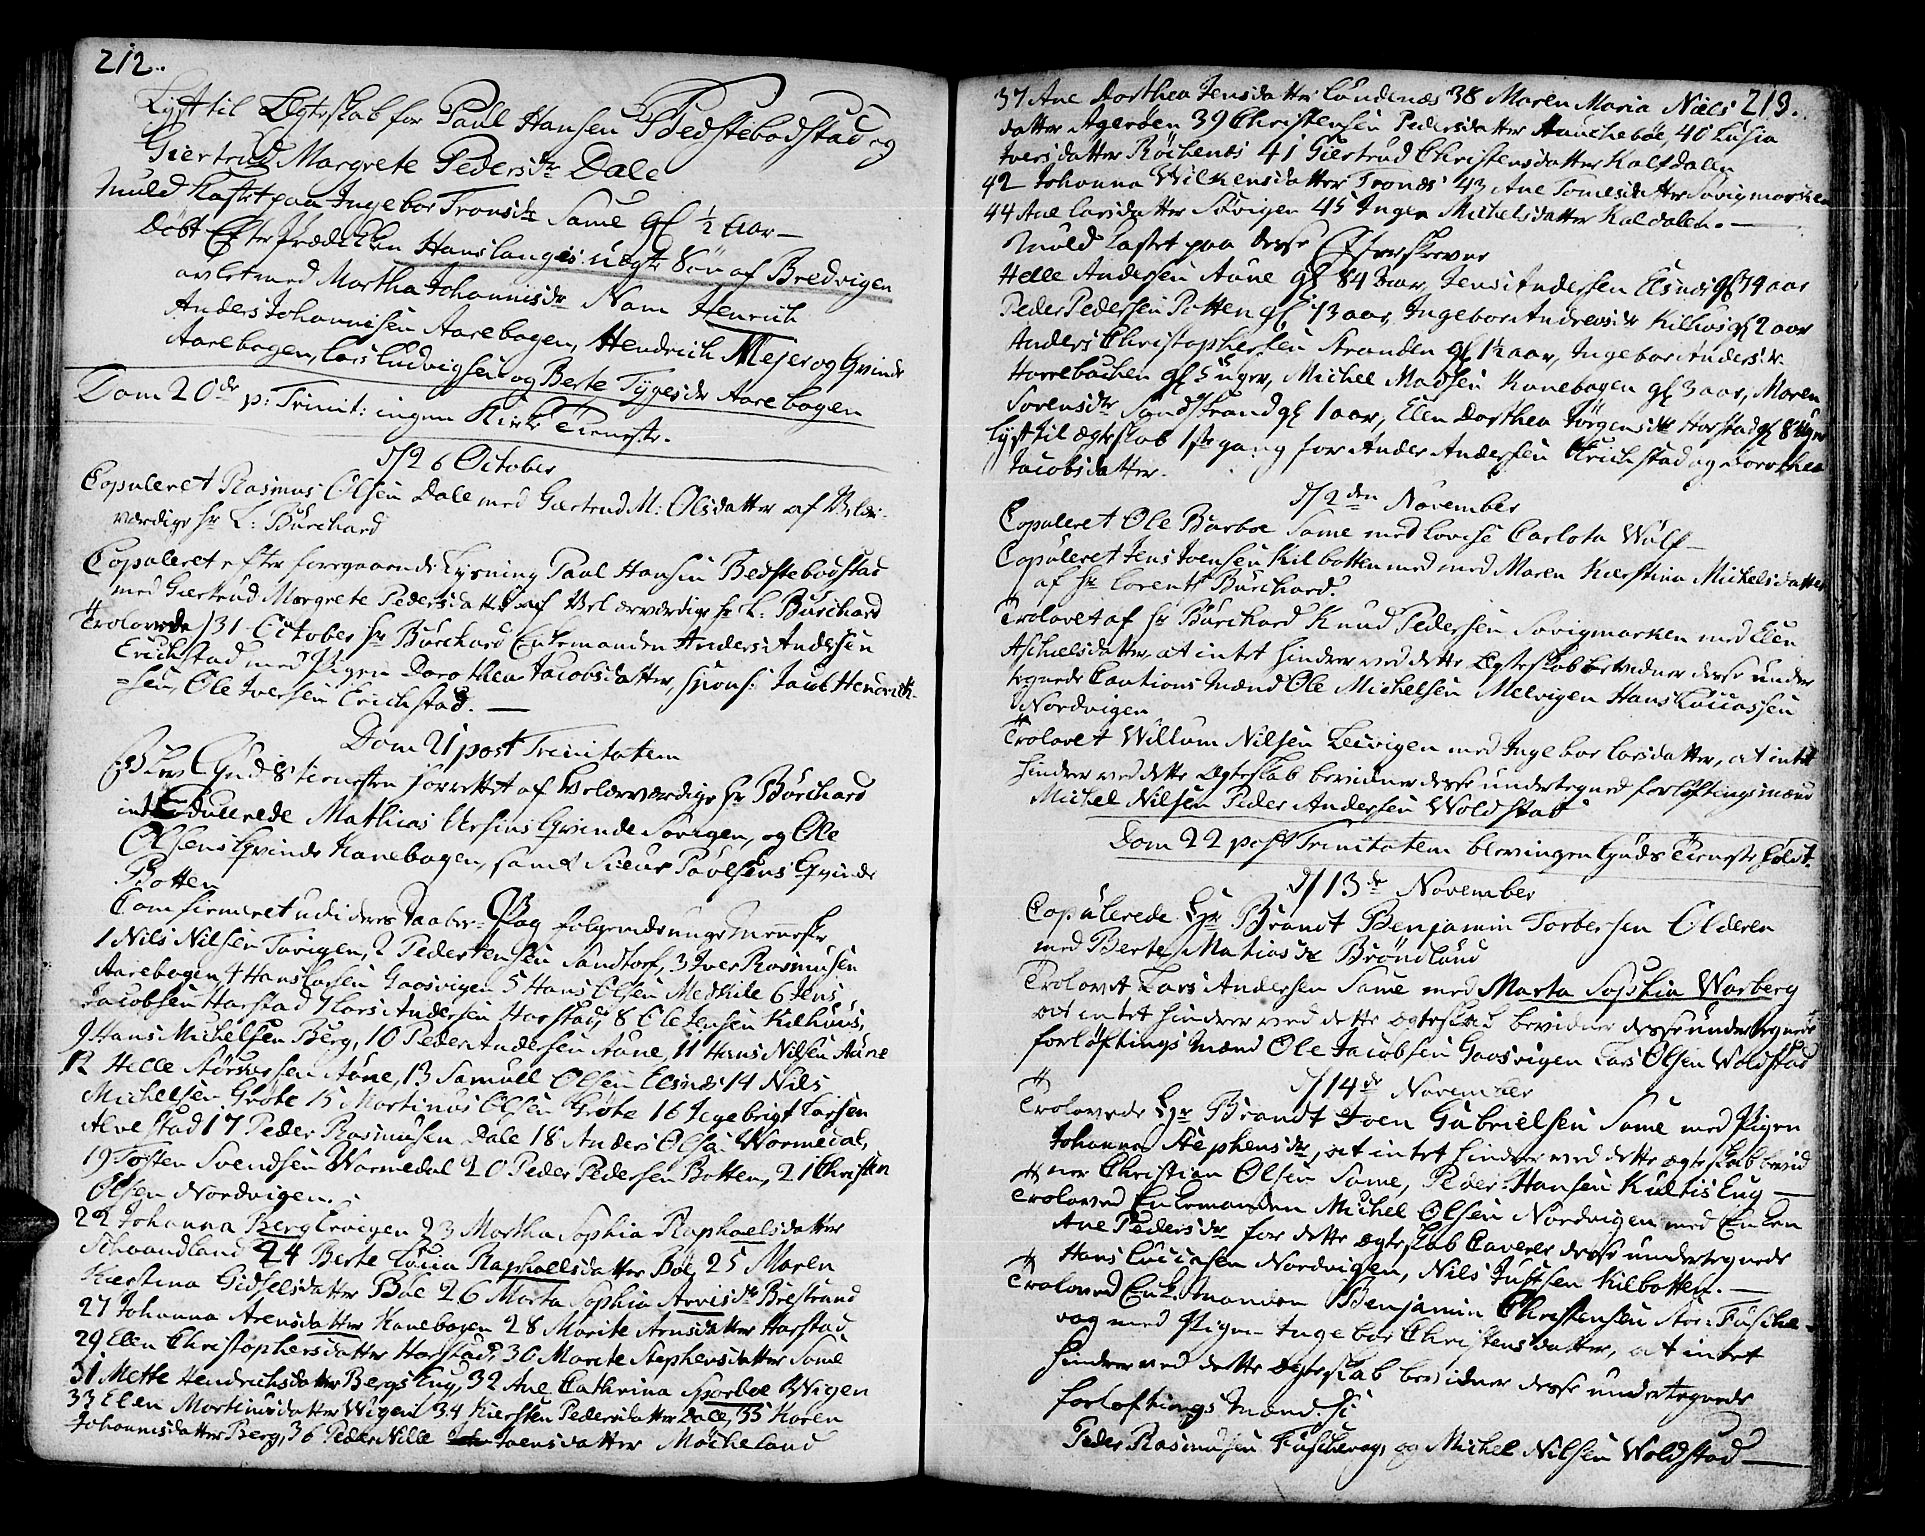 212.
Lyst til Ægteskab for Paul Hansen Bedstebodstad og
Giertrud Margrete Peders dr Dale
Muld kastet paa Ingebor Trons dr Same gl ½ aar —
Døbt Efter Prædiken Hans Langes uægte Søn af Bredvigen
avlet med Martha Johannis dr Navn Henrich
Anders Johannisen Aarebogen, Hendrich Mejer og Qvinde
Aarebogen, Lars Ludvigsen og Berte Tyges dr Aarebogen
Dom 20de p: Trinit: ingen Kirke Tieneste.
d/26 October
Copuleret Rasmus Olsen Dale med Giertrud M: Olsdatter af Vel ær-
værdige Hr L: Burchard
Copuleret efter foregaaende Lysning Paul Hansen Bedstebodstad
med Giertrud Margrete Pedersdatter af Velærværdige Hr L: Burchard
Trolovede d/31 October Hr Burchard Enkemanden Anders Andersen
Erichstad med Pigen Dorothea Jacobsdatter, spons: Jacob Hendrich-
sen, Ole Iversen Erichstad. —
Dom 21 post Trinitatem
Blev Guds tienesten forrettet af Velærværdige Hr Burchard
introdullerede Mathias Ursins Qvinde Sørvigen, og Ole
Olsens Qvinde Kanebogen, samt Sieur Povelsens Qvinde
Botten
Confirmeret udi deres Daabes Pag følgende unge Mennesker
1 Nils Nilsen Tovigen, 2 Peder Jensen Sandtorf, 3 Iver Rasmusen
Aarebogen 4 Hans Gaasvigen 5 Hans Olsen Medkile 6 Jens
Jacobsen Harstad 7 Lars Andersen Harstad, 8 Ole Jensen Kilhuus,
9 Hans Michelsen Berg, 10 Peder Andersen Aune, 11 Hans Nilsen Aune
12 Helle Andersen Aune, 13 Samuel Olsen Elsnes 14 Nils
Michelsen Grøte 15 Martinus Olsen Grøte 16 Ingebrigt Larsen
Alvestad 17 Peder Rasmusen Dale 18 Anders Olsen Wormedal,
19 Tosten Svendsen Wormedal 20 Peder Pedersen Botten, 21 Christen
Olsen Nordvigen.
22 Johanna Berg Ervigen 23 Martha Sophia Raphaelsdatter
Schaandland 24 Berte Lucia Raphaelsdatter Bøe 25 Maren
Kiestina Gidselsdatter Bøe 26 Marta Sophia Arvis dr Brestrand
27 Johanna Arensdatter Kanebogen 28 Marite Arnsdatter Harstad
29 Elen Christophersdatter Harstad, 30 Marite Stephensdatter Same
31 Mette Hendrichsdatter Bergs Eng, 32 Ane Cathrina Sporboe Wigen
33 Elen Martinusdatter Wigen 34 Kiersten Pedersdatter Dale, 35 Karen
Johannisdatter Berg, 36 Peder Nille Joensdatter Møcheland
37 Ane Dorthea Jensdatter Lundenæs 38 Maren Maria Niels 213.
datter Agerøen 39 Christense Pedersdatter Haucheböe, 40 Lusia
Iversdatter Röchenæs 41 Giertrud Christensdatter Kaldalen
42 Johanna Wilkensdatter Trones 43 Ane Tomesdatter Sørvigmarken
44 Ane Larsdatter Sørvigen 45 Inger Michelsdatter Kaldalen. —
Muld kastet paa disse Efterskrevne
Helle Andersen Aune gl 84 aar, Jens Andersen Elsnes gl 74 aar
Peder Pedersen Botten gl 73 aar, Ingebor Andreas dr Kilhus gl 2 aar
Anders Christophersen Stranden gl 1½ aar, Ingebor Anders dr
Horrebachen gl 5 uger, Michel Madsen Kanebogen gl 3 aar, Maren
Sørens dr Sandstrand gl 1 aar, Elen Dorthea Jörgens dr Harstad gl 8 Uger
Lyst til ægteskab 1ste gang for Anders Andersen Erichstad og Dorothea
Jacobsdatter.
d/2den November
Copuleret Ole Barboe Same med Lovise Carlota Wulf —
Copuleret Jens Joensen Kilbotten med med Maren Kierstina Michelsdatter
af Hr Lorents Burchard.
Trolovet af Hr Burchard Knud Pedersen Sørvigmarken med Elen
Aschielsdatter at intet hindrer ved dette Ægteskab bevidner disse under
tegnede Cautions Mænd Ole Michelsen Melvigen Hans Lucassen
Nordvigen
Trolovet Willum Nilsen Leevigen med Ingebor Larsdatter, at intet
hindrer ved dette Ægteskab bevidner disse undertegned forløftningsmænd
Michel Nilsen Peder Andersen Woldstad
Dom 22 post Trinitatem blev ingen Guds Tieneste holdt.
d/13de November
Copulerede Hr Brandt Benjamin Torbersen Olderen
med Berte Matias dr Brøndlund
Trolovet Lars Andersen Same med Marta Sophia Warberg
at intet hindrer ved dette ægteskab bevidner disse undertegnede
forløftnings Mænd Ole Jacobsen Gaasvigen Lars Olsen Woldstad
d/14de November
Trolovede Hr Brandt Joen Gabrielsen Same med Pigen
Johanna Stephens dr, at intet hindrer ved dette ægteskab bevid
ner Christian Olsen Same, Peder Hansen Kultis Eng —
Troloved Enkemanden Michel Olsen Nordvigen med Enken
Ane Peders dr for dette ægteskab Caverer disse undertegnede
Hans Lucasen Nordvigen, Nils Justsen Kilbotten. —
Troloved Enkemanden Benjamin Christensen Stor Fusche-
vog med Pigen Ingebor Christensdatter, at intet
hindrer ved dette ægteskab bevidner disse undertegnede
forløftnings Mænd, S:
Peder Rasmusen Fuschevog, og Michel Nilsen Woldstad —